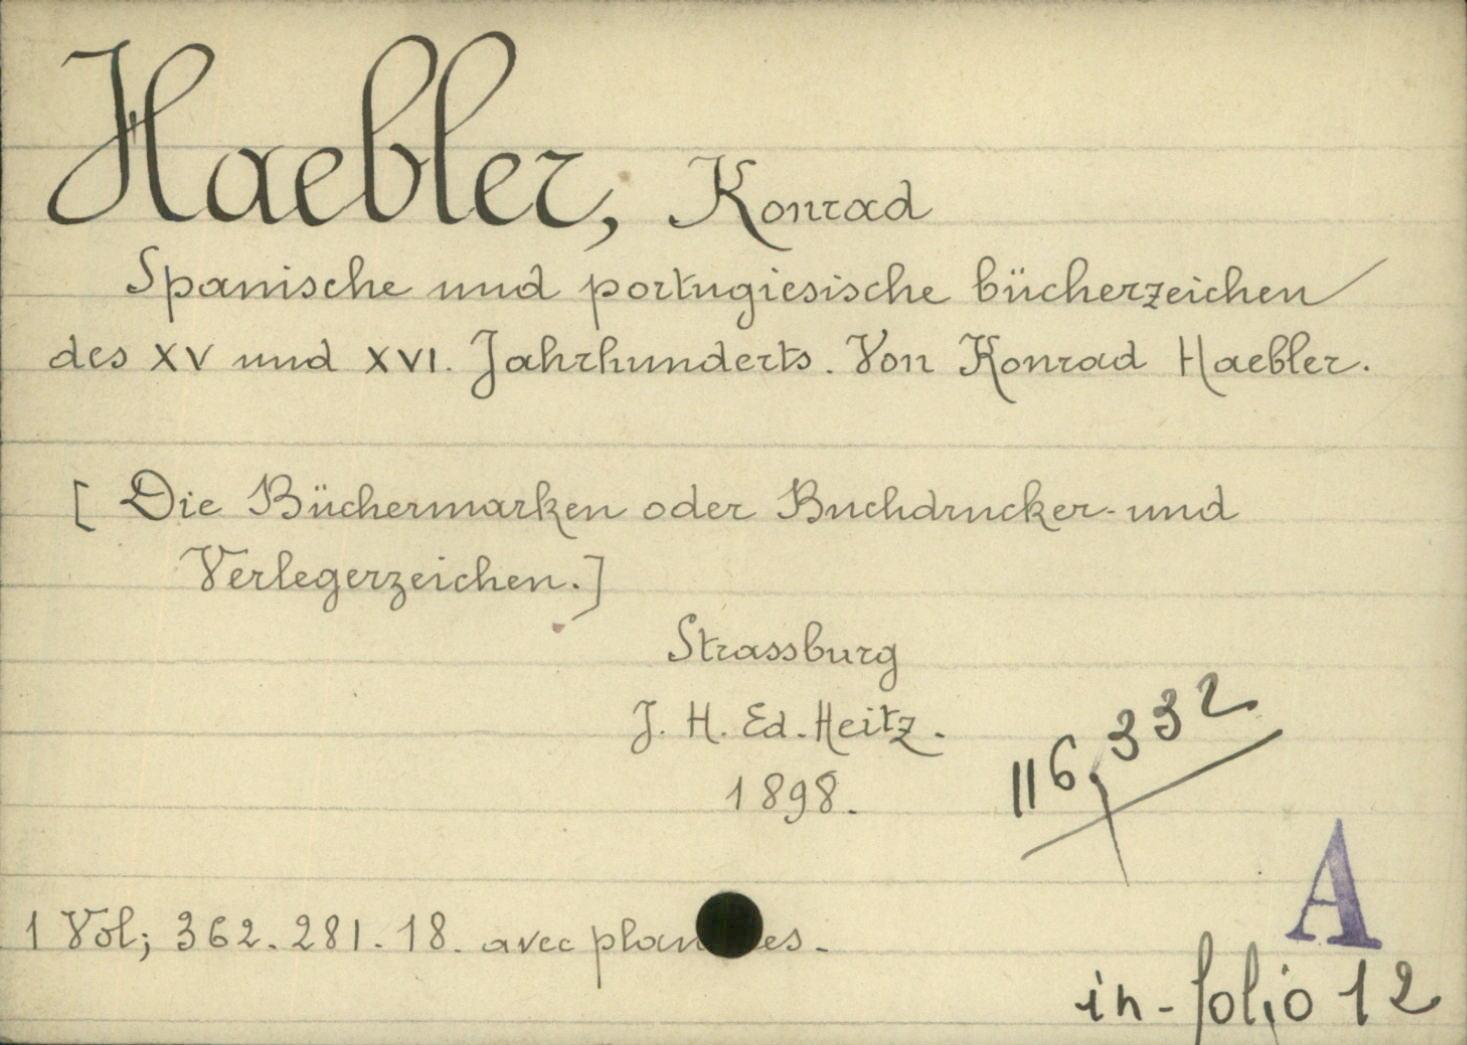 Haebler, Konrad
Spanische und portugiesische bücherzeichen
des XV und XVI. Jahrhunderts. Von Konrad Haebler.
[ Die Büchermarken oder Buchdrucker- und
Verlegerzeichen.]
Strassburg
J. H. Ed. Heitz.
1898.
116,332
A
1 Vol; 362. 281. 18. avec plan es.
in-folio 12